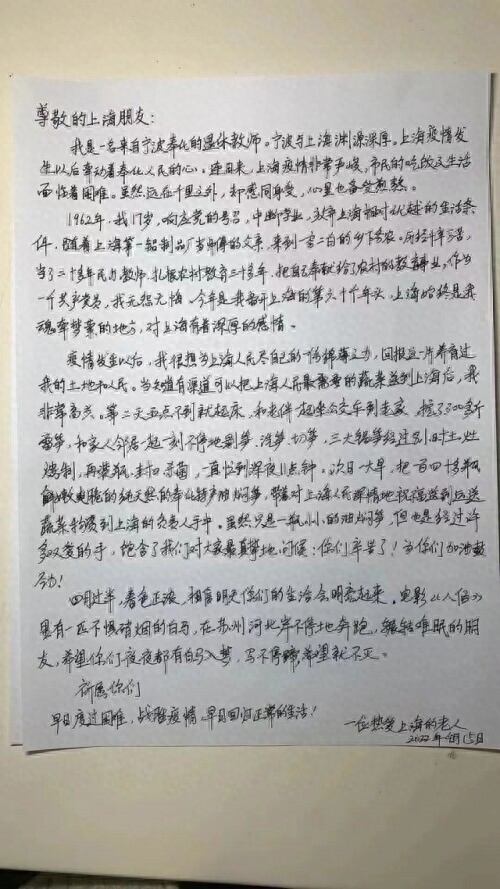 尊敬的上海朋友：
我是一名来自宁波奉化的退休教师。宁波与上海渊源深厚，上海疫情发
生以后牵动着奉化人民的心。连日来，上海疫情非常严峻，市民的吃饭生活
面临着困难。虽然远在千里之外，却感同身受，心里也备受煎熬。
1962年，我17岁，响应党的号召，中断学业，放弃上海相对优越的生活条
件，随着上海第一铝制品厂当师傅的父亲，来到一穷二白的乡下务农。历经千辛万苦，
当了三十多年民办教师，扎根农村教育三十多年，把自己奉献给了农村的教育事业，作为
一个共产党员，我无怨无悔。今年是我离开上海的第六十个年头，上海始终是我
魂牵梦萦的地方，对上海有着深厚的感情。
疫情发生以后，我很想为上海人民尽自己的一份绵薄之力，回报这片养育过
我的土地和人民。当知道有渠道可以把上海人民最需要的蔬菜送到上海后，我
非常高兴。第二天五点不到就起床，和老伴一起坐公交车到老家，挖了300多斤
雷笋，和家人邻居一起一刻不停地剥笋、洗笋、切笋，三大锅笋经过别时土灶
烧制，再装瓶、封口、杀菌，一直忙到深夜11点钟。次日一大早，把一百四十多瓶
鲜嫩爽脆的纯天然的奉化特产油焖笋，带着对上海人民深情地祝福送到运送
蔬菜物资到上海的负责人手中。虽然只是一瓶小小的油焖笋，但也是经过许
多双爱的手，饱含了我们对大家最真挚地问候：你们辛苦了！为你们加油鼓
劲！
四月过半，春色正浓，相信明天你们的生活会明亮起来。电影《八佰》
里有一匹不惧硝烟的白马，在苏州河北岸不停地奔跑，连结难眠的朋
友，希望你们夜夜都有白马入梦，马不停蹄，希望就不灭。
祈愿你们
早日度过困难，战胜疫情，早日回归正常的生活！
一位热爱上海的老人
2022年4月15日